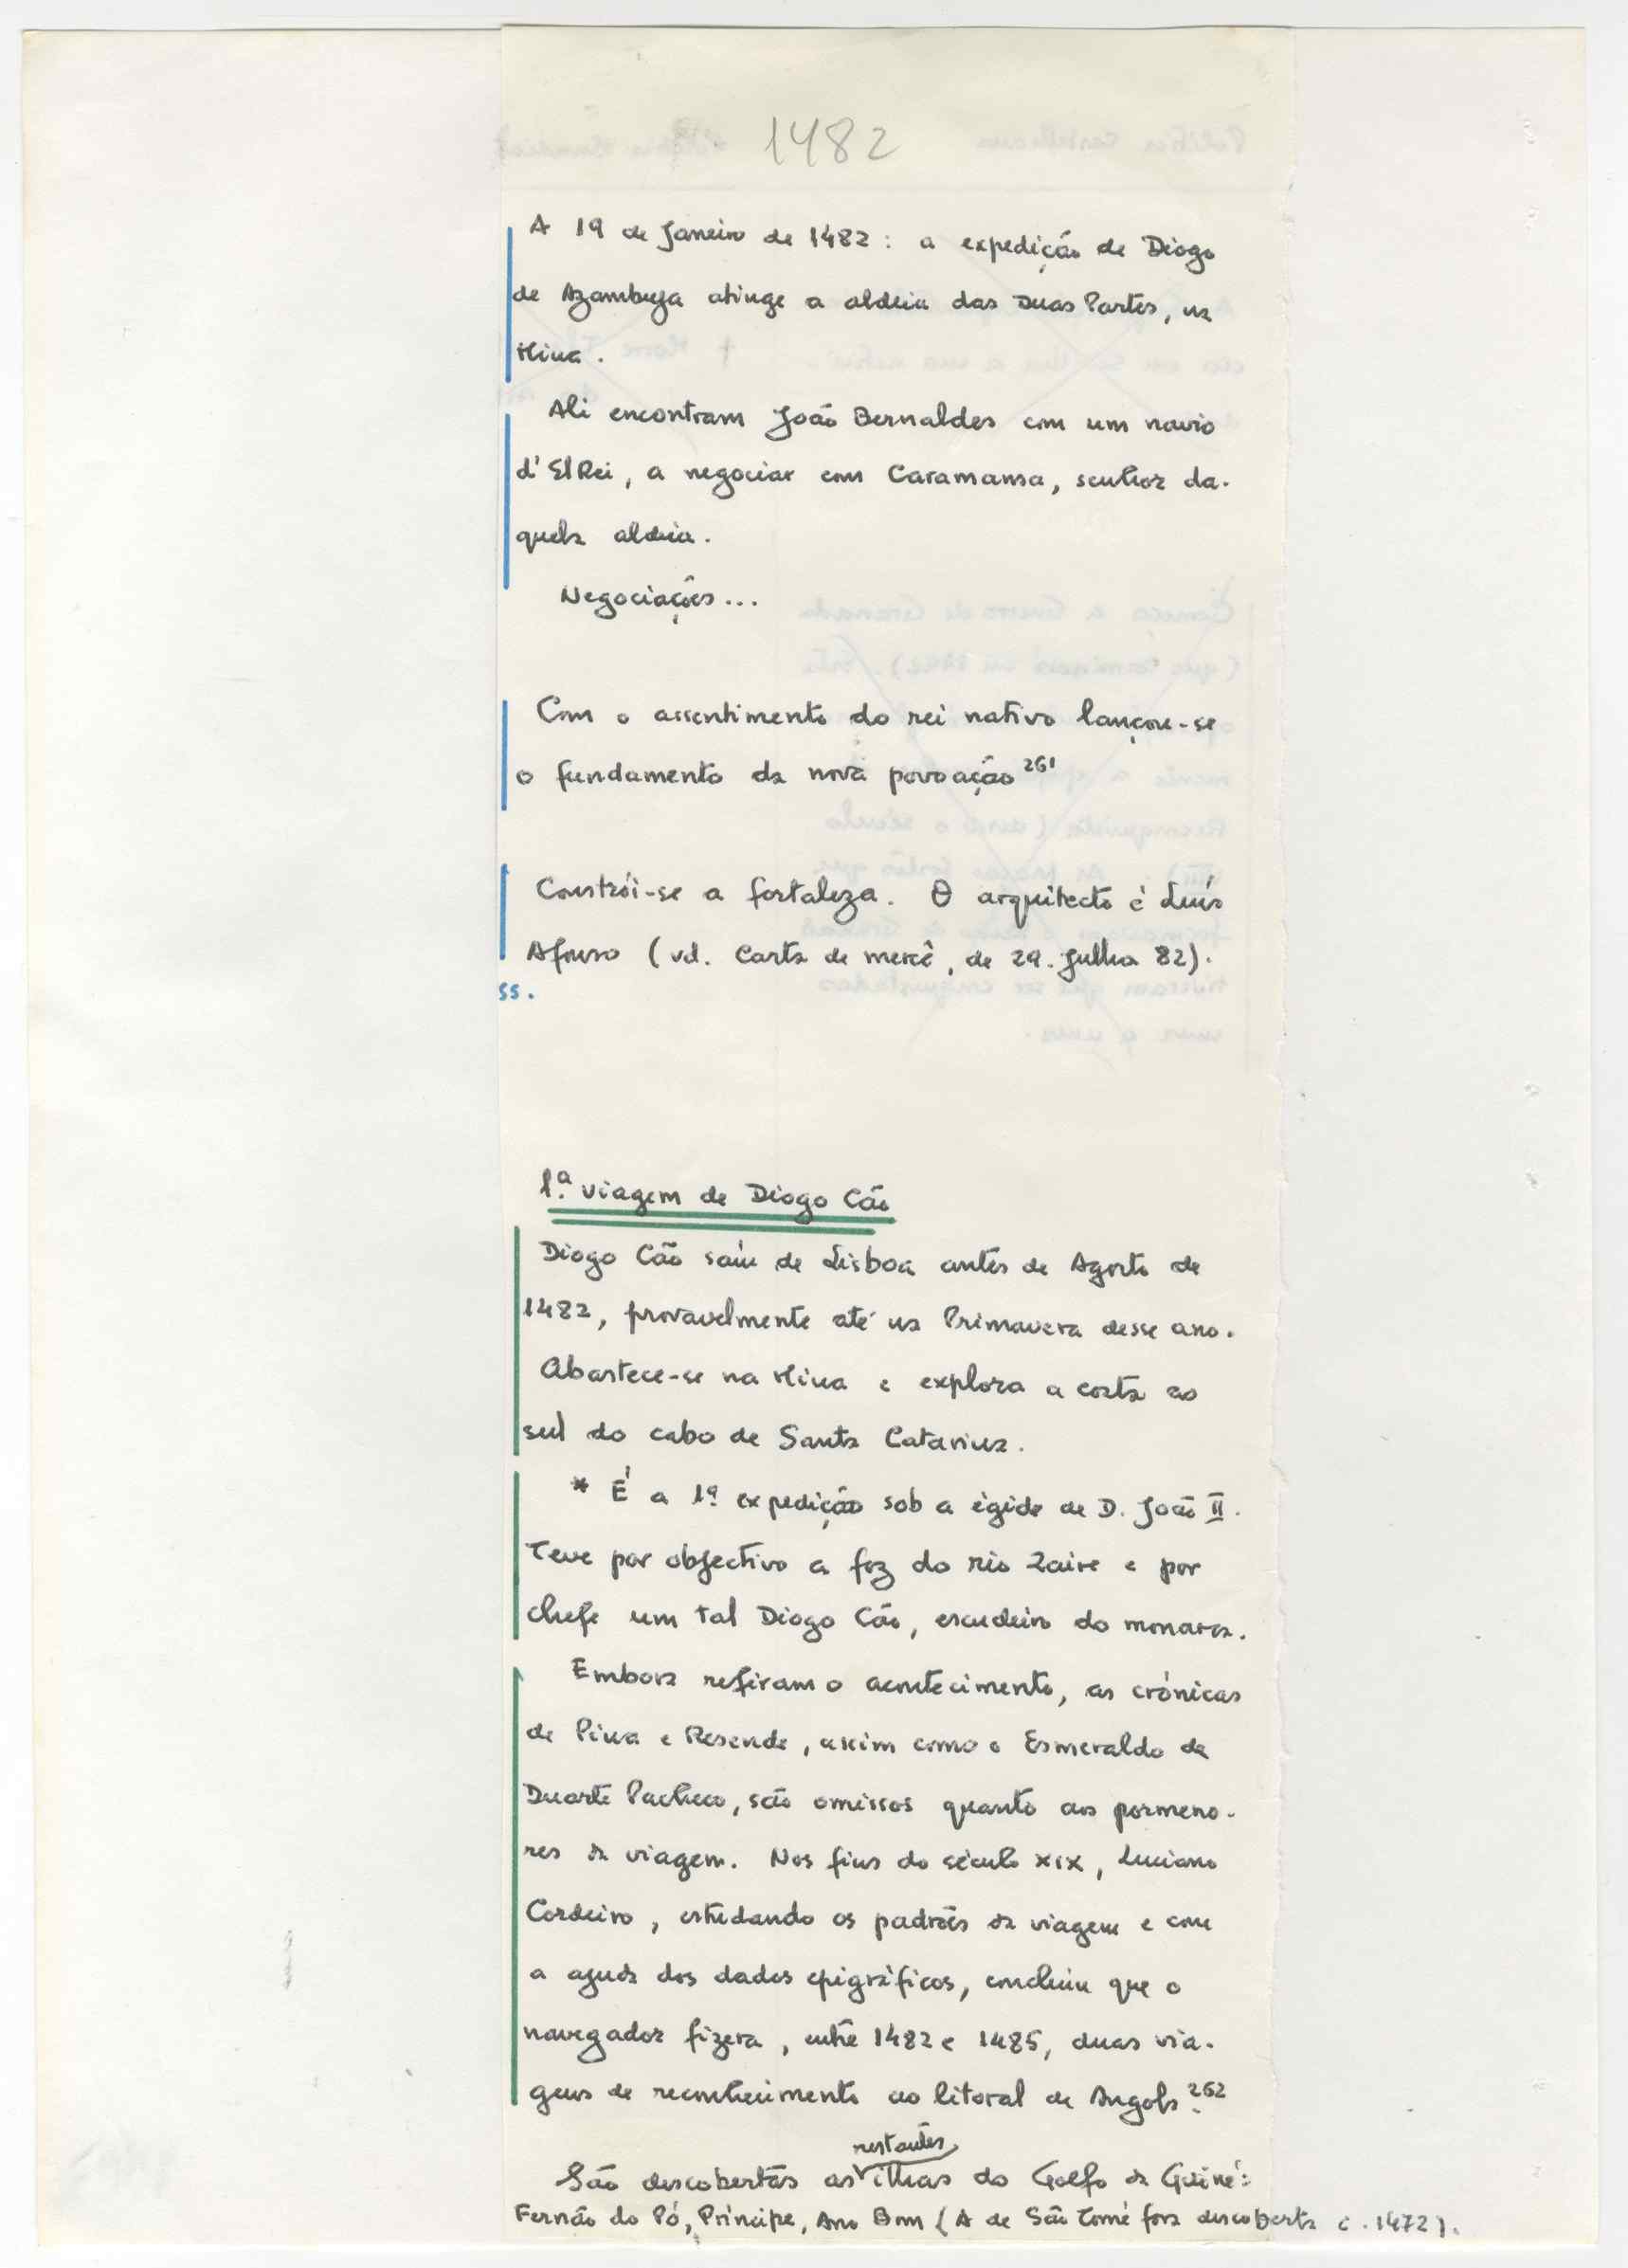 1482
A 19 de Janeiro de 1482: a expedição de Diogo
de Azambuja atinge a aldeia das Duas Partes, na
Mina.
Ali encontram João Bernaldes com um navio
d'El Rei, a negociar com Caramansa, senhor da-
quela aldeia.
Negociações...
Com o assentimento do rei nativo lançou-se
o fundamento da nova povoação 261
Constrói-se a fortaleza. O arquitecto é Luís
Afonso (vd. Carta de mercê, de 29. Julho 82).
ss.
1.ª viagem de Diogo Cão
Diogo Cão saíu de Lisboa antes de Agosto de
1482, provavelmente até na Primavera desse ano.
Abastece-se na Mina e explora a costa ao
sul do cabo de Santa Catarina.
* É a 1ª expedição sob a égide de D. João II.
Teve por objectivo a foz do rio Zaire e por
chefe um tal Diogo Cão, escudeiro do monarca.
Embora refiram o acontecimento, as crónicas
de Pina e Resende, assim como o Esmeraldo de
Duarte Pacheco, são omissos quanto aos pormeno-
res da viagem. Nos fins do século XIX, Luciano
Cordeiro, estudando os padrões da viagem e com
a ajuda dos dados epigráficos, concluíu que o
navegador fizera, entre 1482 e 1485, duas via-
gens de reconhecimento ao litoral de Angola. 262
São descobertas as restantes ilhas do Golfo da Guiné:
Fernão do Pó, Príncipe, Ano Bom (A de São Tomé fora descoberta c. 1472).